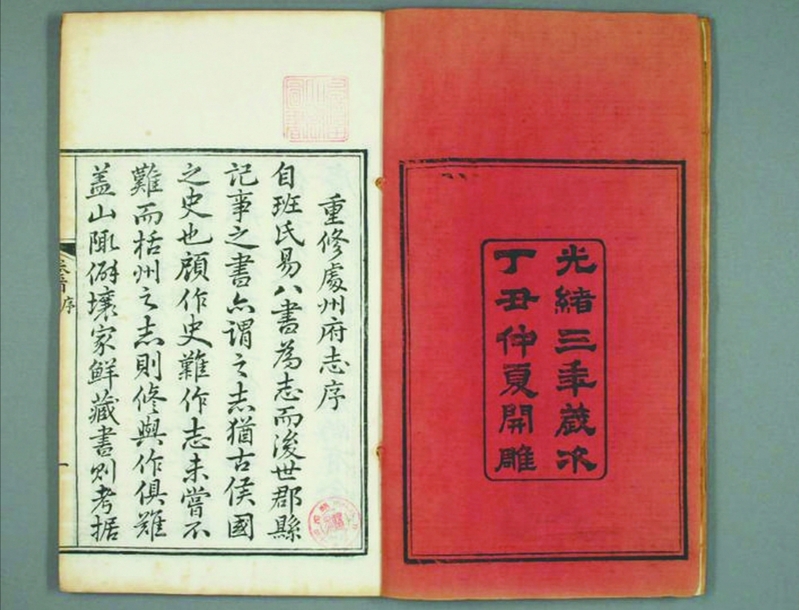 光緒三年歲次
丁丑仲夏開雕
重修處州府志序
自班氏易八書為志而後世郡縣
記事之書亦謂之志猶古侯國
之史也顧作史難作志未嘗不
難而栝州之志則修與作俱難
蓋山陬僻壤家鮮藏書則考据
序
一